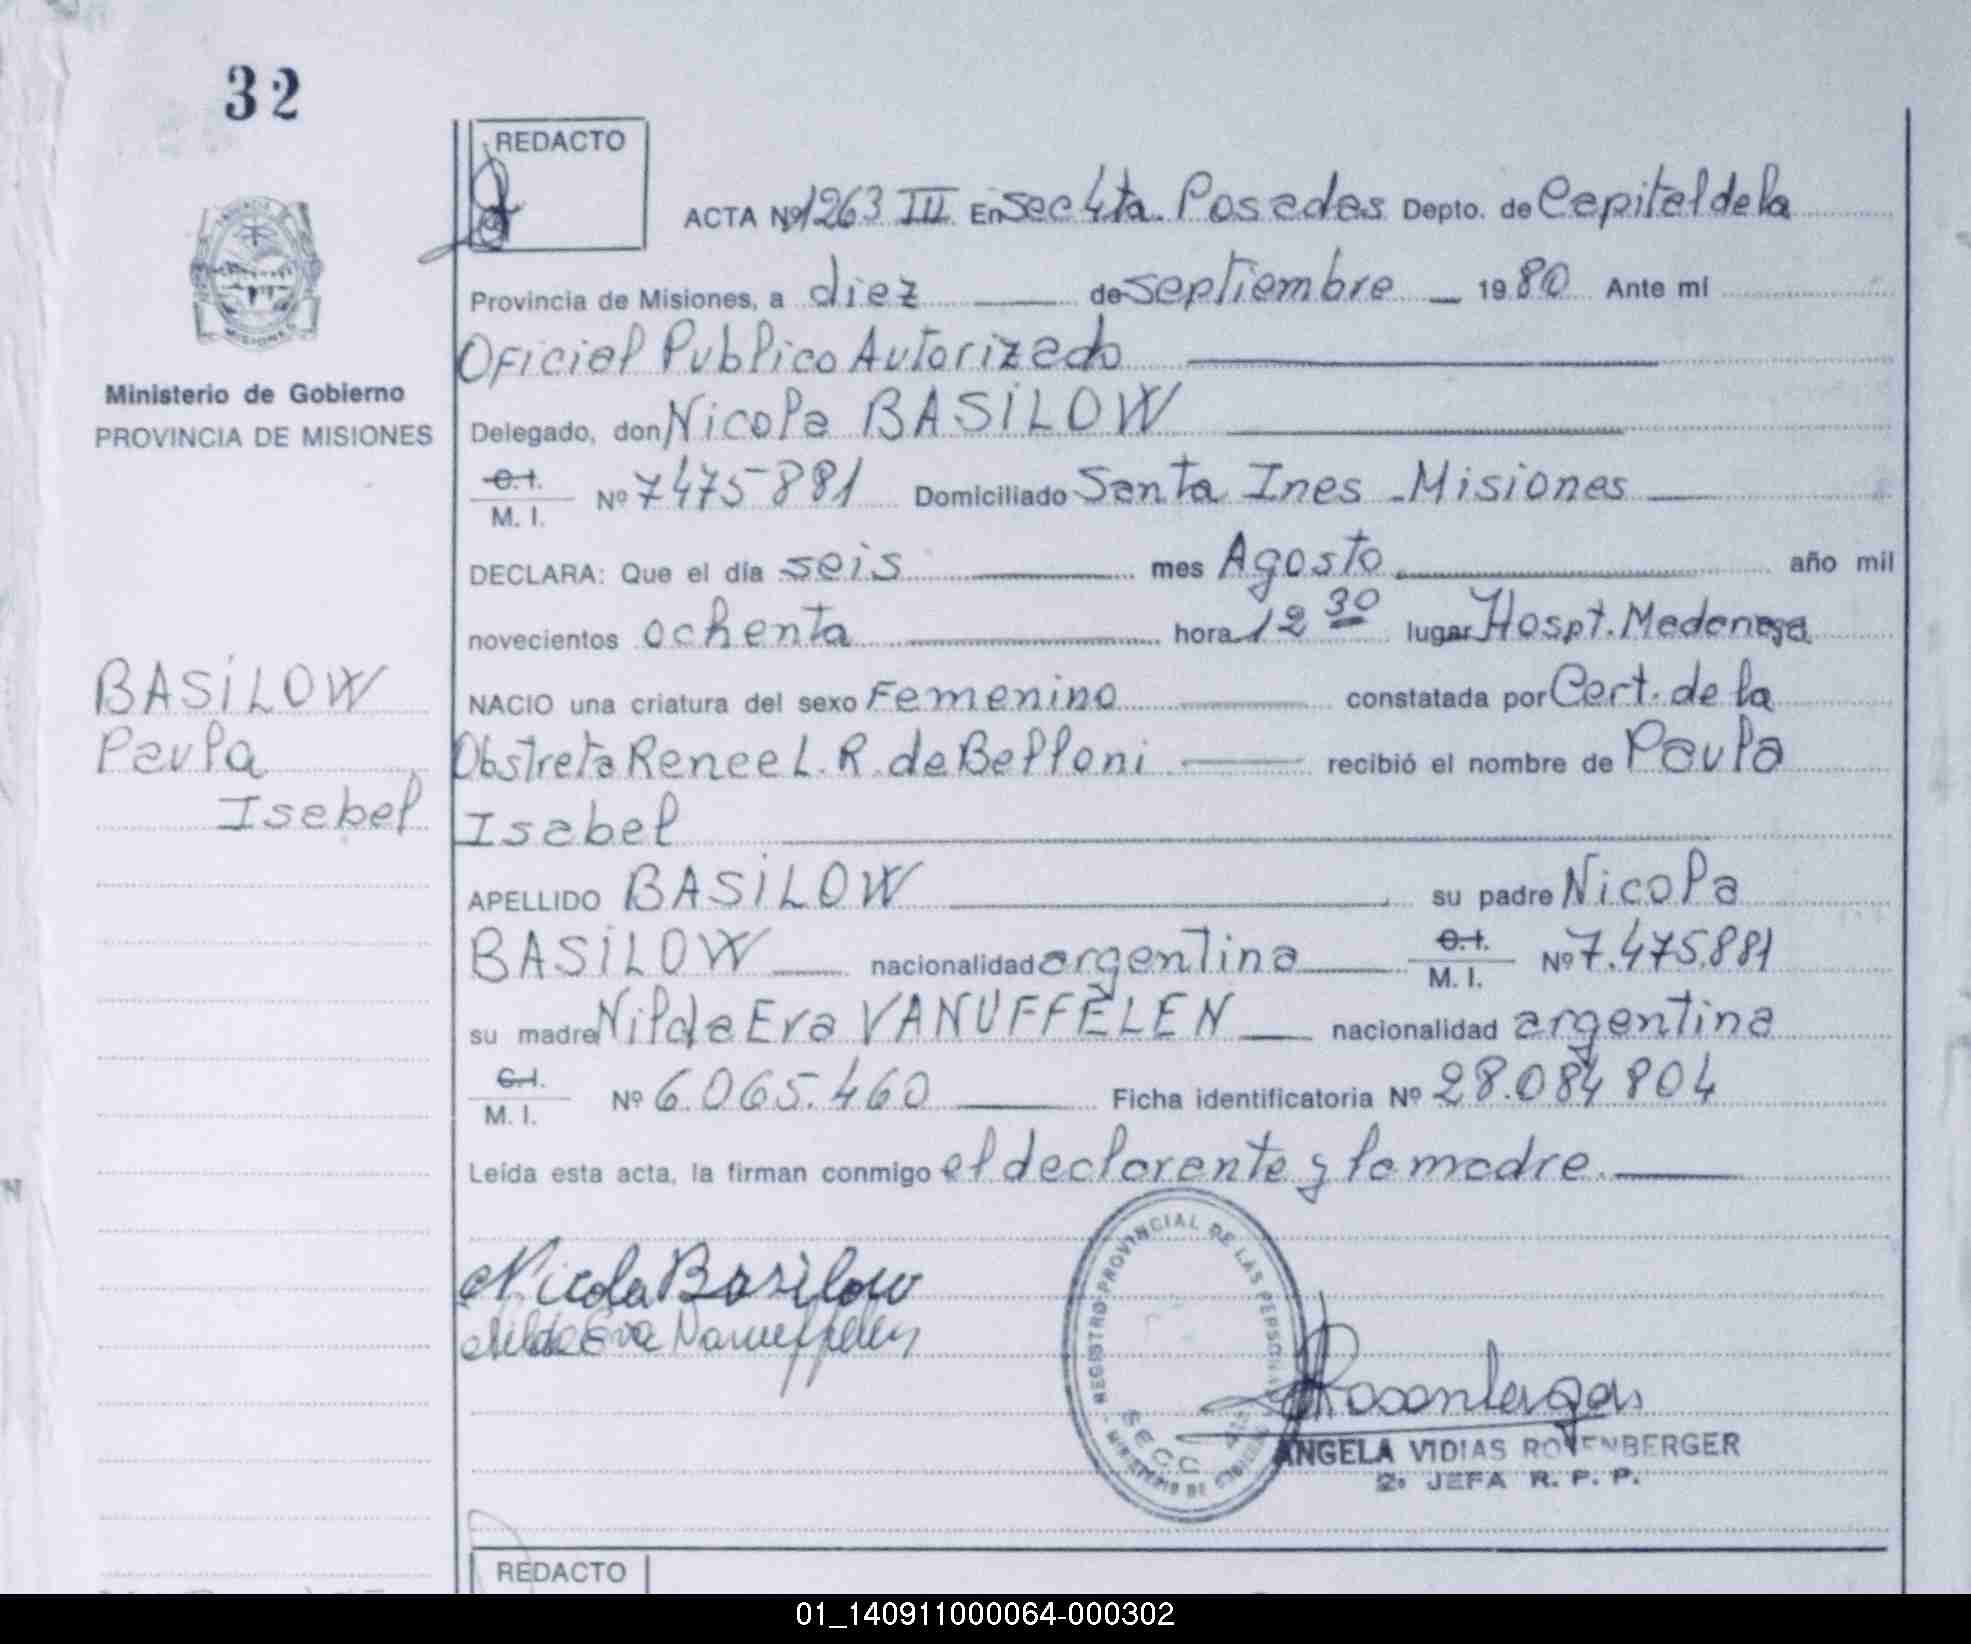 32
REDACTO
ACTA Nº 1263 III En Sec 4ta. Posadas Depto. de Capital de la
Provincia de Misiones, a diez de septiembre 1980 Ante mí
Oficial Publico Autorizado
Ministerio de Gobierno
PROVINCIA DE MISIONES
Delegado, don Nicola BASILOW
C.I. M.I. Nº 7475881 Domiciliado Santa Ines - Misiones
DECLARA: Que el día seis mes Agosto año mil
novecientos ochenta hora 12 30 lugar Hospt. Madariaga
BASILOW
Paula
Isabel
NACIO una criatura del sexo Femenino constatada por Cert. de la
Obstreta Renee L. R. de Belloni recibió el nombre de Paula
Isabel
APELLIDO BASILOW su padre Nicola
BASILOW nacionalidad argentina C.I. M.I. Nº 7.475.881
su madre Nilda Eva VANUFFELEN nacionalidad argentina
C.I. M.I. Nº 6.065.460 Ficha identificatoria Nº 28.084804
Leída esta acta, la firman conmigo el declarante y la madre.
Nicola Basilow
Nilda Eva Vanuffelen
REGISTRO PROVINCIAL DE LAS PERSONAS
SECC 4ta
MINISTERIO DE GOBIERNO
Rosenberger
ANGELA VIDIAS ROSENBERGER
2º JEFA R. P. P.
REDACTO
01_140911000064-000302